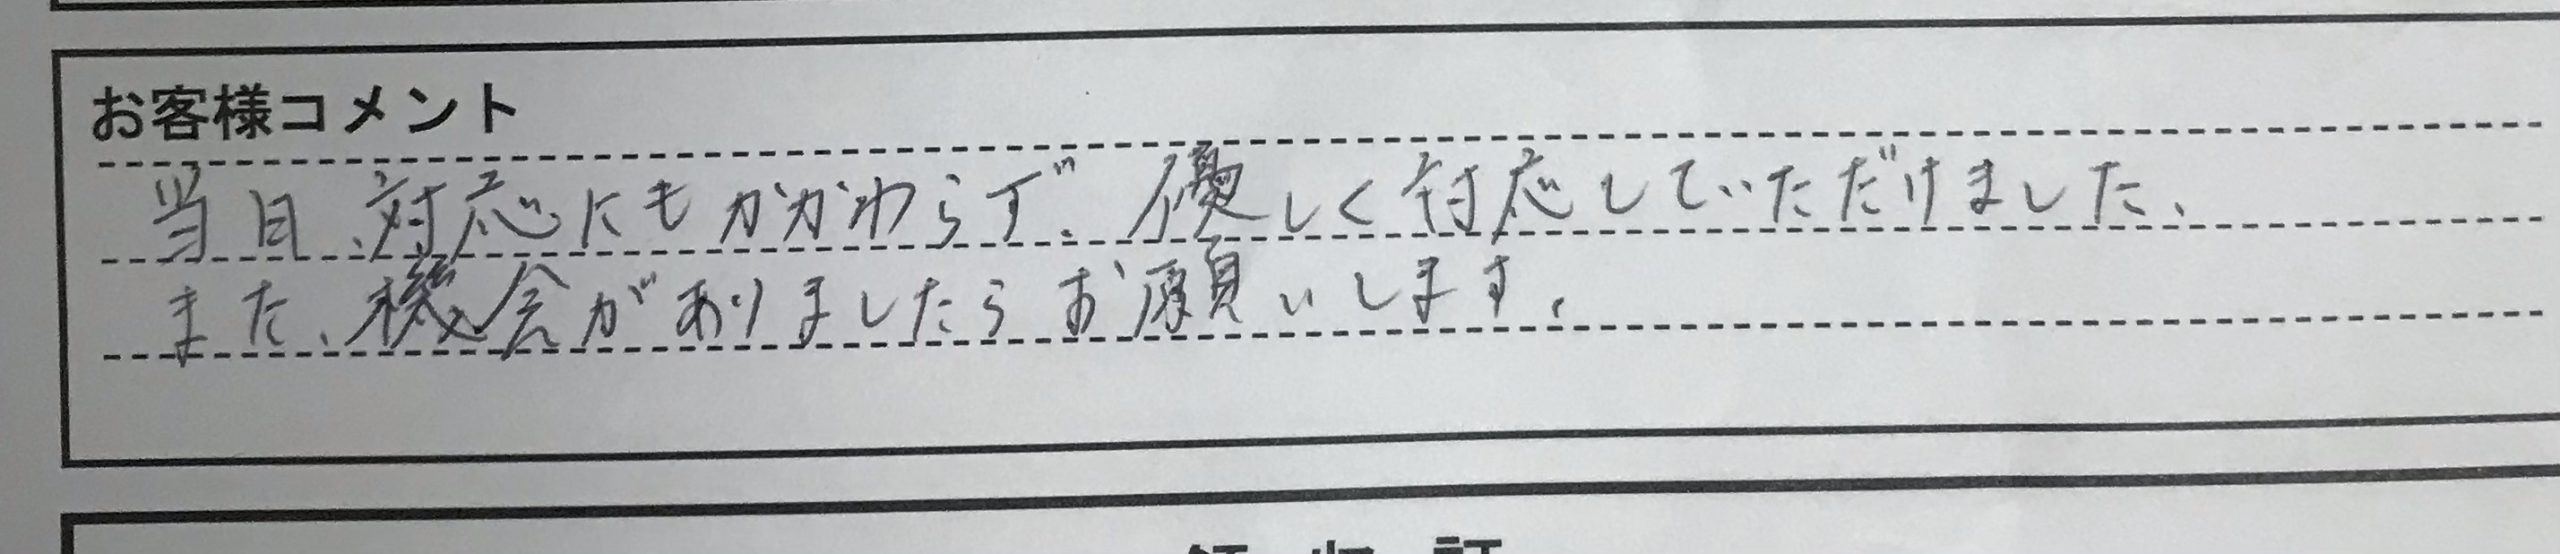 お客様コメント
当日、対応にもかかわらず、優しく対応していただけました、
また、機会がありましたらお願いします。